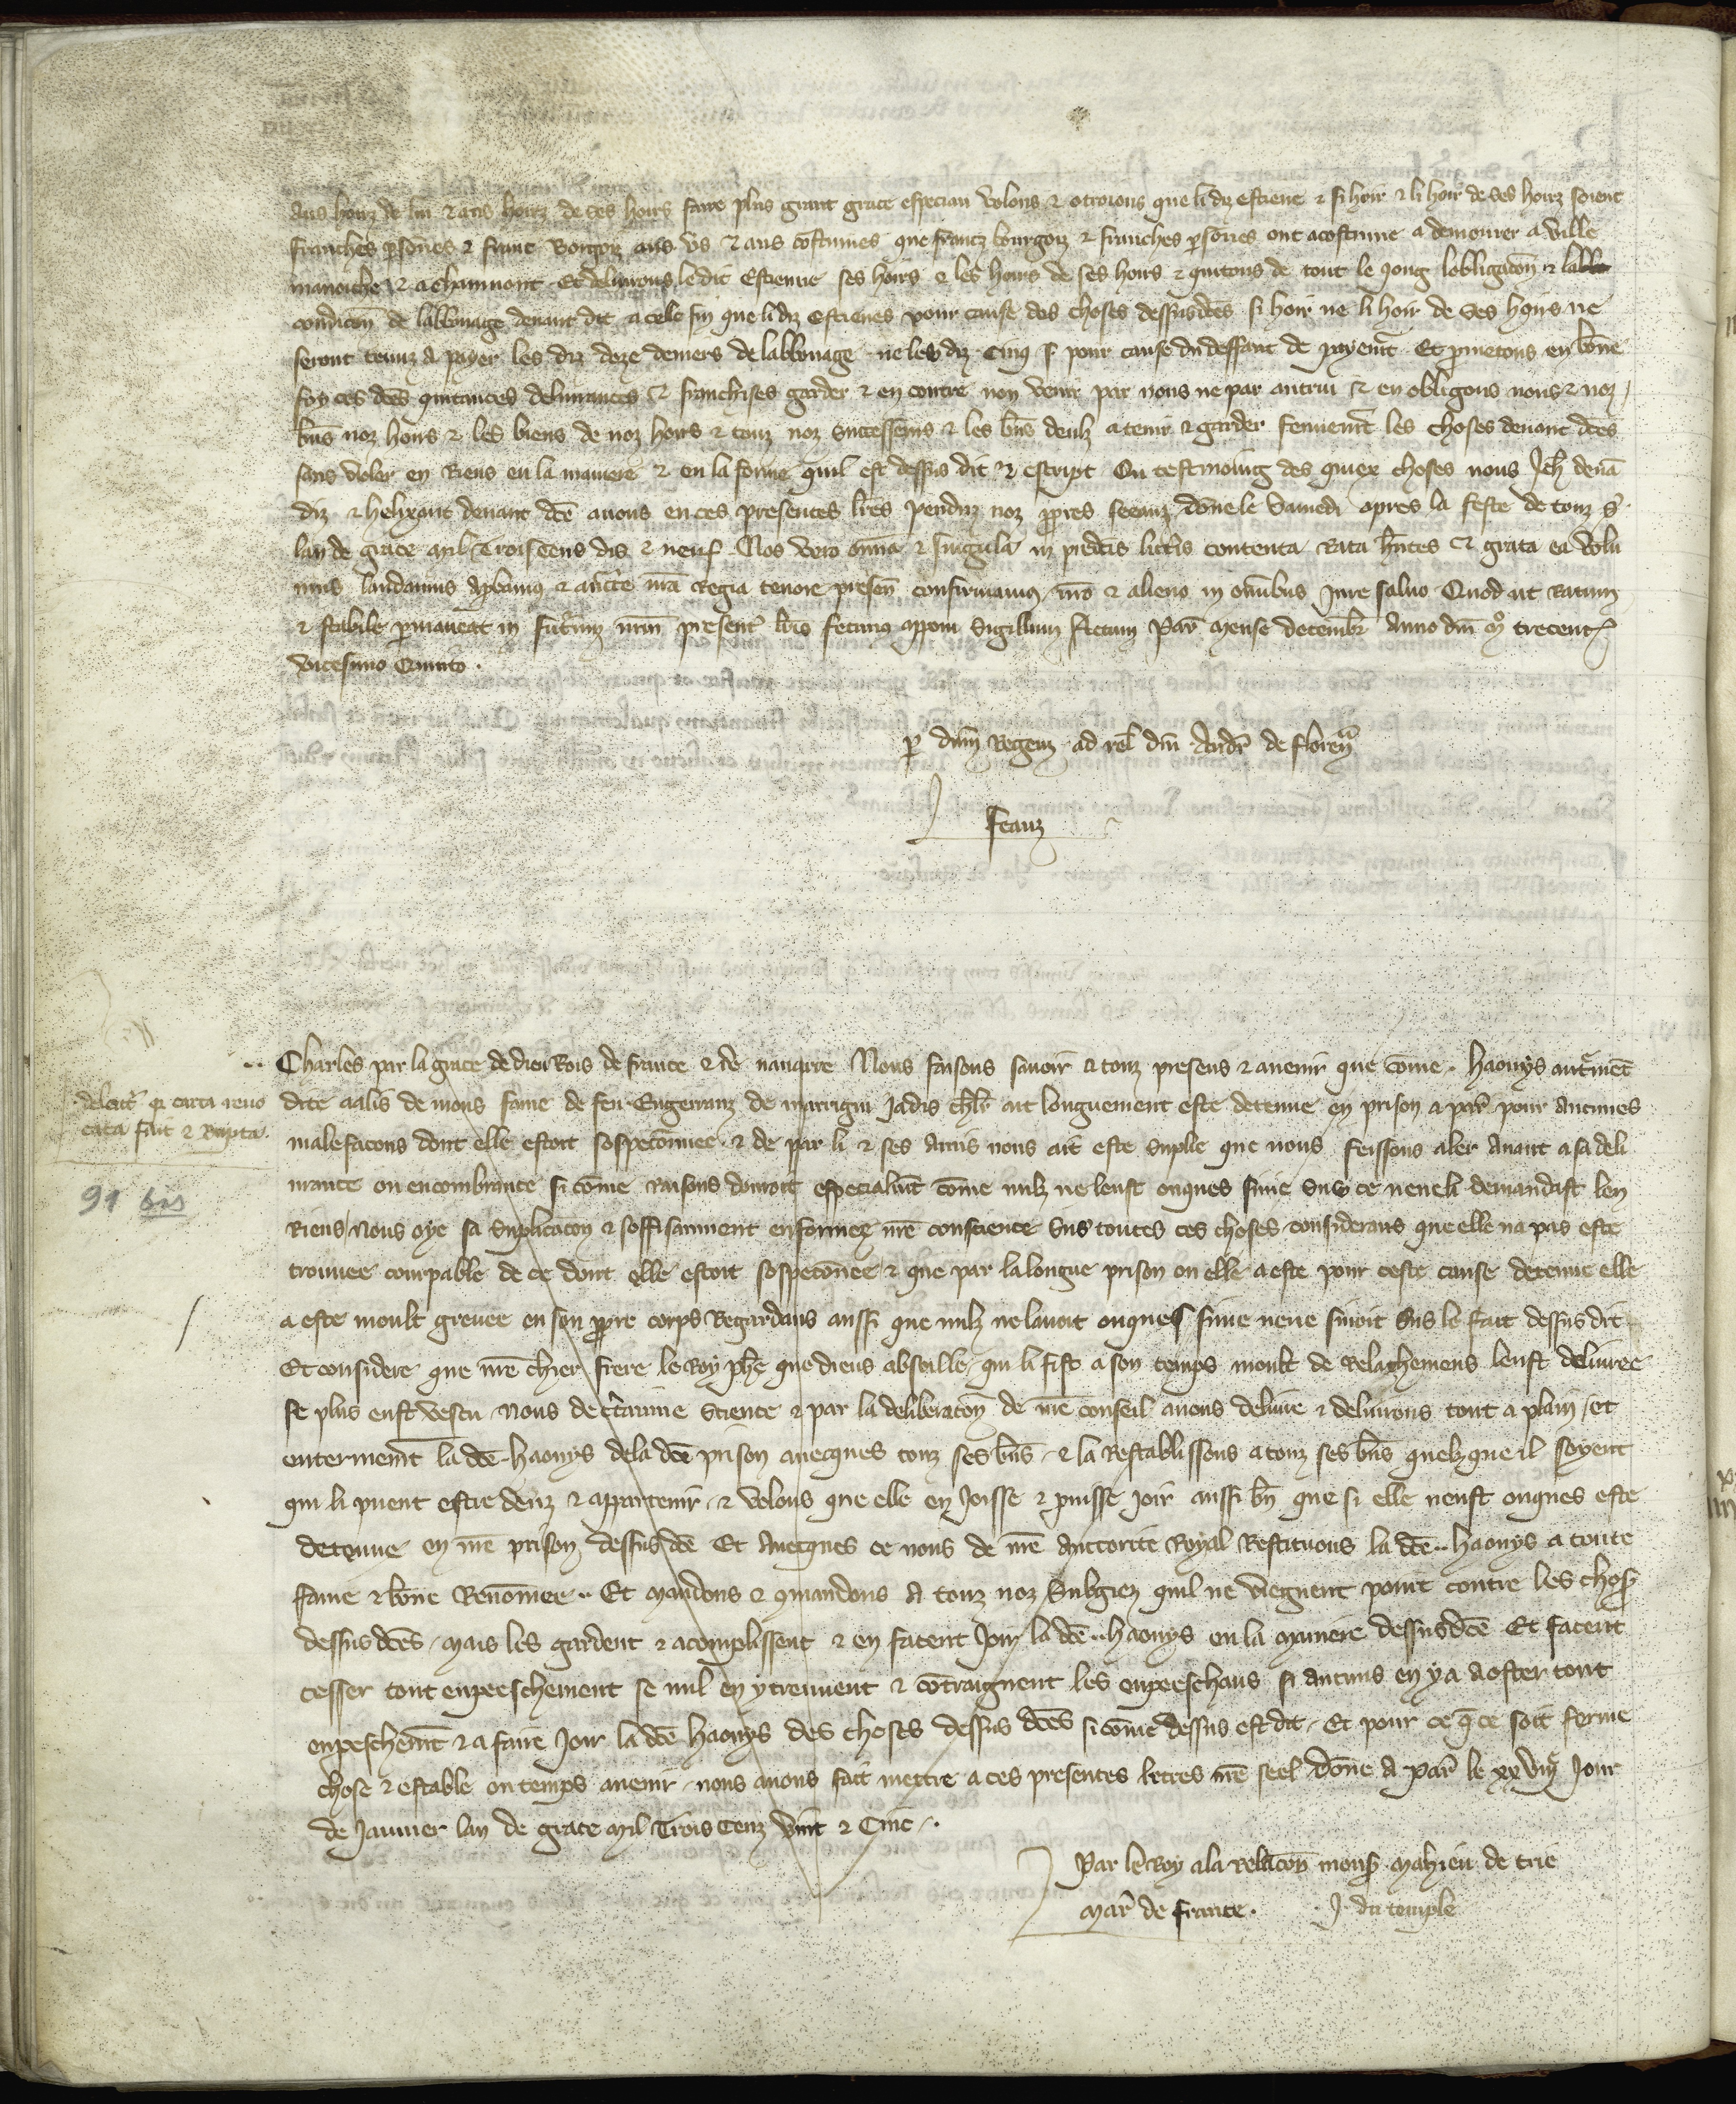 aus hoirz de lui & aus hoirz de ses hoirs faire plus grant grace especiau volons & otroions que li diz estiene & si hoir & li hoir de ses hoirz soient
franches psones & franc Borgois aus us & aus costumes que francz bourgois & franches psones ont acostume a demourer a ville
manoiche & a chaumont Et delivrons ledit Estienne ses hoirs & les hoirs de ses hoirs & quitons de tout le joug lobligacon & la
condicon de labonage devant dit a celle fin que li diz estienes pour cause des choses dessusdites si hoir ne li hoir de ses hoirs ne
seront tenuz a payer les diz doze deniers de labonage ne les diz cinq s pour cause du deffaut de payemt Et pmetons en bone
foy ces dces quitances delivrances & franchises garder & en contre non venir par nous ne par autrui & en obligons nous & noz
bns noz hoirs & les biens de noz hoirs & touz noz successeurs & les bns deulz a tenir & garder fermemt les choses devant dces
sans violer en Riens en la maniere & en la forme quil est dessus dit & escript En tesmoing des quiex choses nous Jeh devã
diz & helixant devant dce avons en ces presentes lres penduz noz ppres seeaux done le samedi apres la feste de touz s
lan de grace mil Trois Cens dis & neuf Nos vero omia & singula in pdictis litteris contenta Rata hntes & grata ea volu
mus laudamus apbamus & auctte nra Regia tenore presen confirmamus nro & alieno in omibus Jure salvo Quod ut Ratum
& stabile pmaneat in futurum nrm present lris fecimus apponi Sigillum Actum Par mense decembr Anno dni m trecent
vicesimo Quinto .
p dnm Regem ad rel dni Andr de florent
feauz
.. Charles par la grace de dieu Rois de france & de navarre Nous faisons savoir a touz presens & avenir que come . haouys autremt
dite aalis de mons fame de feu Engerranz de marrigni Jadis chlr ait longuement este detenue en prison a par pour aucunes
malefacons dont elle estoit sospeconnee & de par li & ses Amis nous ait este suplie que nous feissons aler avant a sa deli
vrance ou encombrance si come raisons donroit especialmt come nulz ne leust onques sivie sus ce nene li demandast len
Riens Nous oye sa suplicacon & soffisamment enformez nre conscience sus toutes ces choses considerans que elle na pas este
trouvee courpable de ce dont elle estoit sospeconee & que par la longue prison ou elle a este pour ceste cause detenue elle
a este moult grevee en son ppre corps Regardans aussi que nulz ne lavoit onques sivie nene sivoit sus le fait dessus dit
Et considere que nre chier frere le Roy phe que dieus absoille qui li fist a son temps moult de Relachemens leust delivree
se plus eust vescu Nous de ctaine science & par la deliberacon de nre conseil avons delivre & delivrons tout a plain et
enterinemt la dce haouys de la dce prison avecques touz ses bns & la Restablissons a touz ses bns quelzque il soyent
qui li puent estre deuz & appartenir & volons que elle en Joisse & puisse joir aussi bn que si elle neust onques este
detenue en nre prison dessus dce Et avecques ce nous de nre Auctorite Royal Restituons la dce .. haouys a toute
fame & bone Renomee .. Et mandons & cmandons A touz noz Subgiez quil ne viegnent point contre les chos
dessus dces / mais les gardent & acomplissent & en facent Joir la dce .. haouys en la maniere dessusdce Et facent
cesser tout enpeeschement se nul en y treuvent & cõtraignent les enpeeschans si aucuns en y a a oster tout
enpeschemt & a faire Joir la dce haouys des choses dessus dces si come dessus est dit Et pour ce q ce soit ferme
chose & estable ou temps avenir nous avons fait mettre a ces presentes lettres nre seel Done A par le xxviij Jour
de Janvier lan de grace mil Trois Cenz vint & Cinc .
Par le Roy a la relacon mons mahieu de trie
mar de france . J. du temple
deleatr q carta revo
cata fuit & Rupta .
91 bis